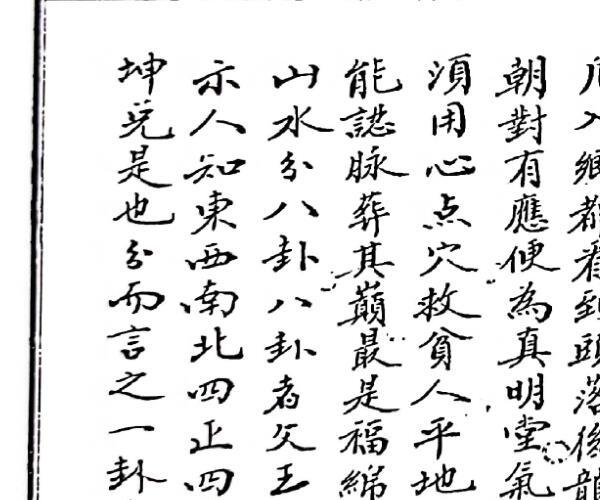 入鄉都看到頭落後龍
朝對有應便為真明堂氣
須用心点穴救貧人平地
能誌脉葬其巔最是福綿
山水分八卦八卦者文王
示人知東西南北四正四
坤兌是也分而言之一卦